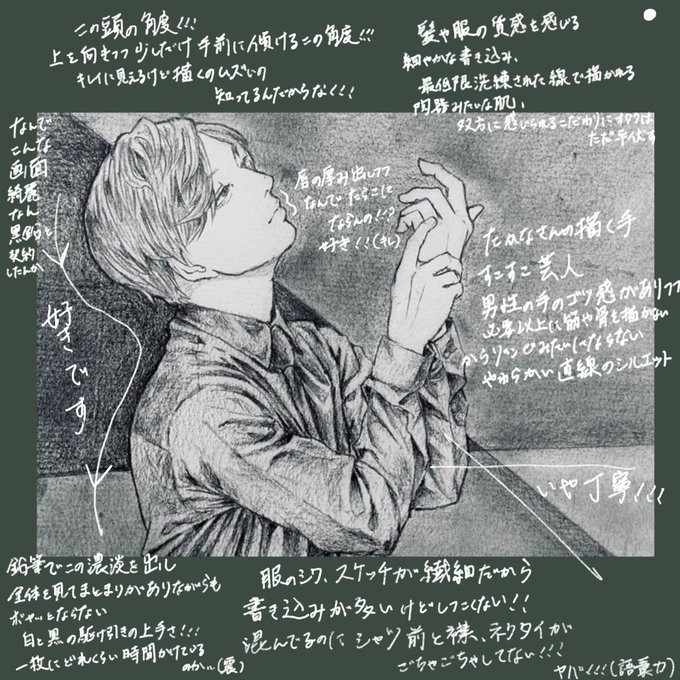 この頭の角度!!!
上を向きつつ少しだけ手前に傾けるこの角度!!!
キレイに見えるけど描くのムズいの
知ってるんだからなく!!!
髪や服の質感を感じる
細やかな書き込み、
最低限洗練された線で描かれる
陶器みたいな肌、
双方に感じられるこだわりにオタクは
ただ平伏す
なんで
こんな
画面
綺麗
なん
黒鉛と
契約
したんか
唇の厚み出してて
なんでたらこに
ならんの!!?
好き!!
たかなさんの描く手
すこすこ芸人
男性の手のゴツ感がありつつ
必要以上に筋や骨を描かない
からリンゼみたいにならない
やわらかい直線のシルエット
好きです
いや丁寧!!!
鉛筆でこの濃淡を出し
全体を見てまとまりがありながらも
ボヤッとならない
白と黒の駆け引きの上手さ!!!
一枚にどれくらい時間かけている
のか…(震)
服のシワ、スケッチが繊細だから
書き込みが多いけどしつこくない!!
混んでるのにシャツ前と襟、ネクタイが
ごちゃごちゃしてない!!!
ヤバ!!!(語彙力)